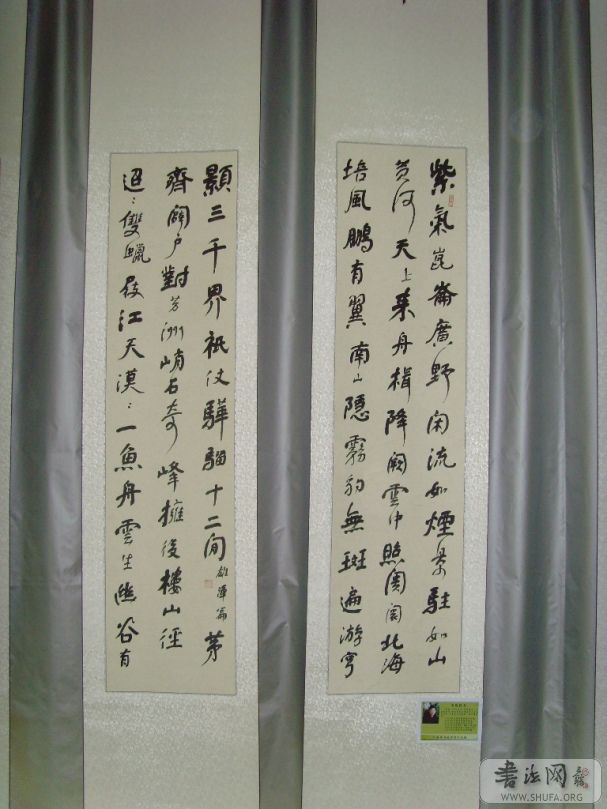 紫氣崑崙廣野閑流如煙景駐如山
黃河天上來舟楫降闕雲中照閶闔北海
培風鵬有翼南山隱霧豹無斑遍游穹
顥三千界祇仗驊騮十二閑雄渾篇茅
齊闢户對芳洲峭石奇峰擁後樓山徑
迢:雙蠟屐江天漠:一魚舟雲生幽谷有
书法网
WWW.SHUFA.ORG